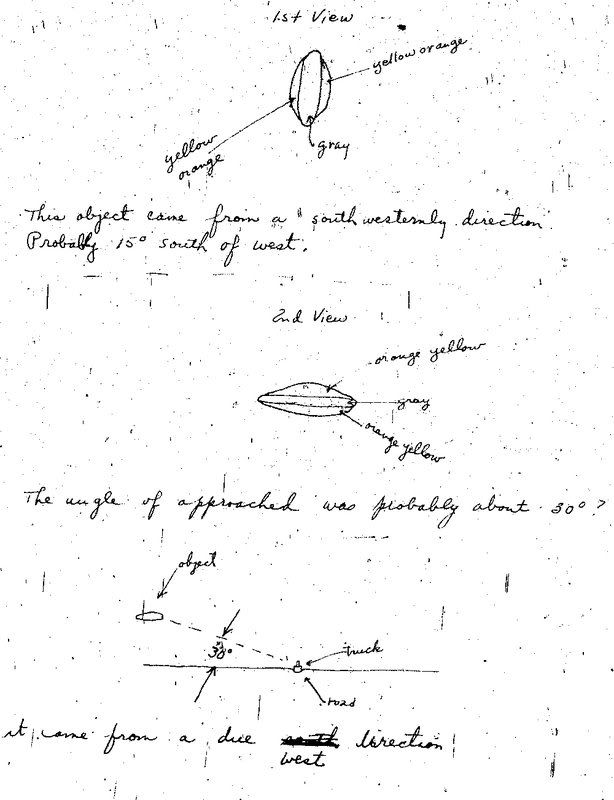 1st View
yellow orange
yellow
orange
gray
This object came from a southwesternly direction
Probably 15° south of west.
2nd View
orange yellow
gray
orange yellow
The angle of approached was probably about 30°?
object
30°
truck
road
it came from a due south direction
west